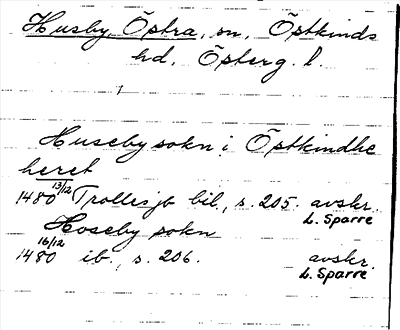 Husby, Östra, sn, Östkinds
hd. Österg. l.
Huseby sokn i Östkindhe
heret
1480 13/12 Trollesjb bil., s. 205. avskr.
L. Sparre
Hoseby sokn
1480 16/12 ib., s. 206. avskr.
L. Sparre